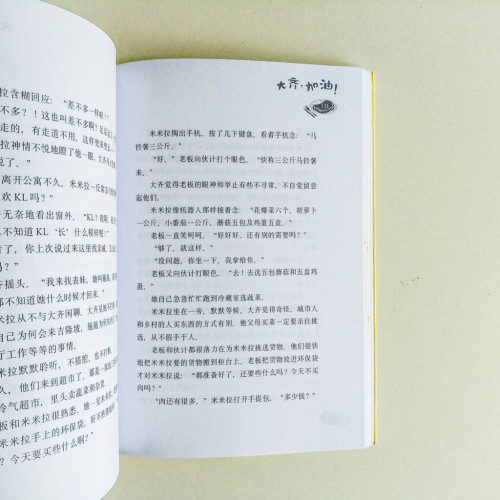 拉含糊回应：“差不多一样啊！”
不多？！这也叫差不多啊？是
走的，有走道不用，这样
拉神情不悦地瞪了他一眼，大齐
说了。”
离开公寓不久，米米拉一反
欢KL吗？”
无奈地看出窗外，“KL？我
不知道KL‘长’什么模样呢！”
了，你上次说过来这里找亲戚，
吗？”
齐摇头，“我来找表妹，她
都不知道她什么时候才回来。”
米拉从不与大齐闲聊，大齐
自己为何会来吉隆坡，
厅工作等等的事情。
米拉默默聆听，不搭腔，也不打断。
久，他们来到超市了，那是一家
冷气超市，里头卖蔬菜和杂货。
板和米米拉很熟悉，她一
米米拉手上的环保袋，好不热情
？今天要买些什么啊？”
大齐·加油！
121
米米拉掏出手机，按了几下键盘，看着手机念：“马
铃薯三公斤。”
“好。”老板向伙计打个眼色，“快称三公斤马铃薯
来。”
大齐觉得老板的眼神和举止有些不寻常，不自觉留意
起他们。
米米拉像机器人那样接着念：“花椰菜六个，胡萝卜
一公斤，小番茄一公斤，蘑菇五包及鸡蛋五盒。”
老板一直笑呵呵，“好好好，还有别的需要吗？”
“够了，就这样。”
“没问题，你坐一下，我拿给你。”
老板又向伙计打眼色，“去！去选五包蘑菇和五盒鸡
蛋。”
她自己急急忙忙跑到冷藏室选蔬菜。
米米拉坐在一旁，默默等候，大齐觉得奇怪，城市人
和乡村的人买东西的方式有别，他父母买菜一定要亲自挑
选，从不假手于人。
老板和伙计都很落力在为米米拉挑选货物，他们很快
地把米米拉要的货物搬到柜台上，老板把货物放进环保袋
才对米米拉说：“都准备好了，还要些什么吗？今天不买
肉吗？”
“肉还有很多，”米米拉打开手提包，“多少钱？”